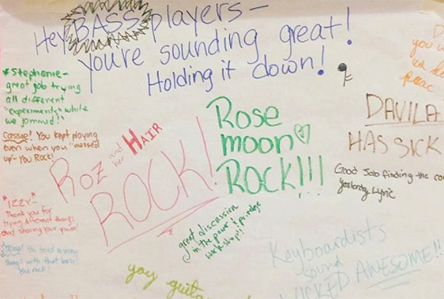 Hey BASS players-
You're sounding great!
Holding it down!
*Stephanie-
great job trying
all different
"experiments" while
we jammed!
Cassie! You kept playing
even when you "messed
up"- You Rock!
Roz and her HAIR
ROCK!
Rose
moon
Rock!!!
DAVILA
HAS SICK
Good Job finding the
yesterday Lyric
"IZZY-
Thank you for
trying different things
and sharing your
things with that bass!
You rock!
great discussion
in the power & privilege
workshop!!
Keyboardists
sound
NAKED AWESOME!!!
yay guita